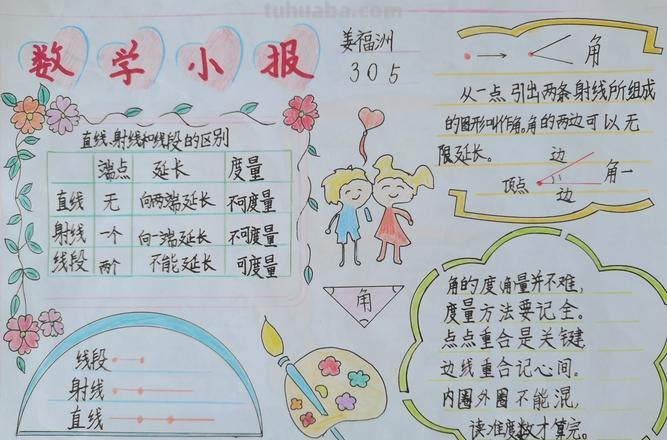 tuhuaba.com
数学小报
姜福洲
305
直线、射线和线段的区别
端点 延长 度量
直线 无 向两端延长 不可度量
射线 一个 向一端延长 不可度量
线段 两个 不能延长 可度量
线段
射线
直线
角
从一点引出两条射线所组成
的图形叫作角,角的两边可以无
限延长。
边
顶点
角一
边
角
角的度角量并不难,
度量方法要记全。
点点重合是关键
边线重合记心间。
内圈外圈不能混,
读准度数才算完。